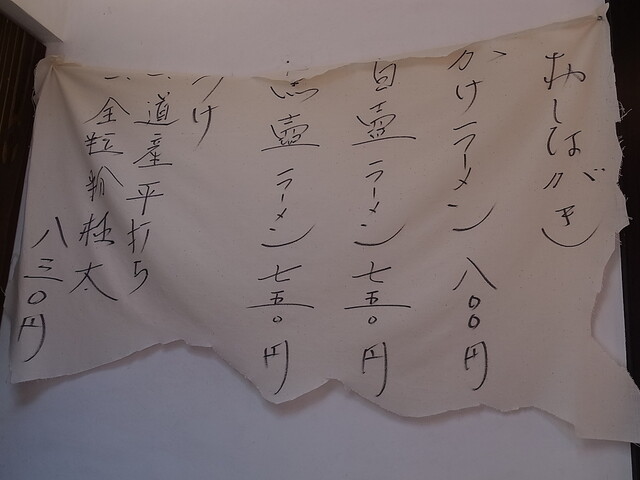 おしながき
かけラーメン 八〇〇円
白壷ラーメン 七五〇円
黒壷ラーメン 七五〇円
つけ
一、道産平打ち
一、全粒粉極太
八三〇円